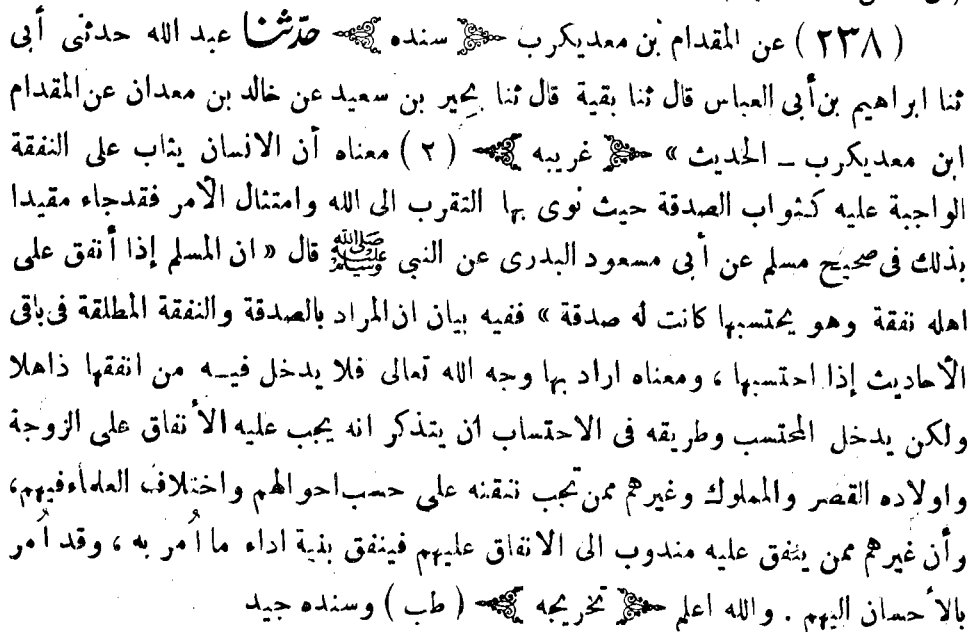 ( ٢٣٨ ) عن المقدام بن معديكرب ﴿ سنده ﴾ حدّثنا عبد الله حدثنى أبى
ثنا ابراهيم بن أبى العباس قال ثنا بقية قال ثنا بحير بن سعيد عن خالد بن معدان عن المقدام
ابن معديكرب ــ الحديث » ﴿ غريبه ﴾ ( ٢ ) معناه أن الانسان يثاب على النفقة
الواجبة عليه كثواب الصدقة حيث نوى بها التقرب الى الله وامتثال الأمر فقد جاء مقيدا
بذلك فى صحيح مسلم عن أبى مسعود البدرى عن النبى ﷺ قال « ان المسلم إذا أنفق على
اهله نفقة وهو يحتسبها كانت له صدقة » ففيه بيان ان المراد بالصدقة والنفقة المطلقة فى باقى
الأحاديث إذا احتسبها ، ومعناه اراد بها وجه الله تعالى فلا يدخل فيــه من انفقها ذاهلا
ولكن يدخل المحتسب وطريقه فى الاحتساب ان يتذكر انه يجب عليه الأنفاق على الزوجة
واولاده القصر والمملوك وغيرهم ممن تجب ننقنه على حسب احوالهم واختلاف العلماء فيهم،
وأن غيرهم ممن ينفق عليه مندوب الى الانفاق عليهم فينفق بنية اداء ما أُمر به ، وقد أُمر
بالأحسان اليهم . والله اعلم ﴿ تخريجه ﴾ ( طب ) وسنده جيد